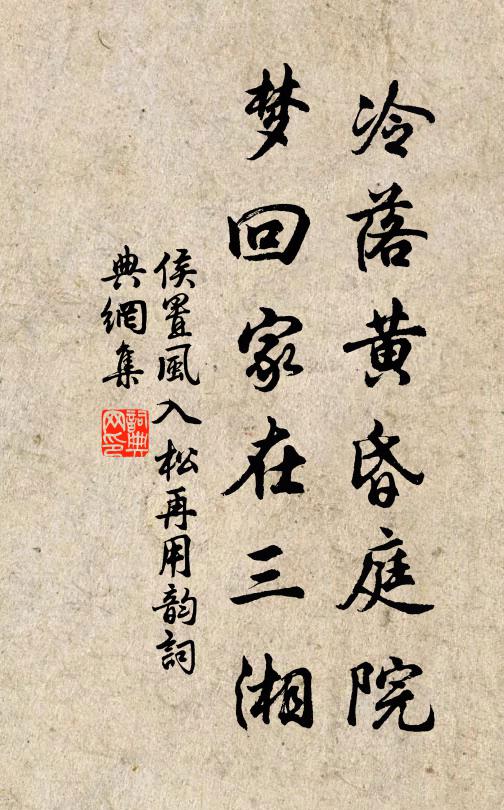 冷落黄昏庭院
梦回家在三湘
侯置風入松再用韵詞
典網集
詞典网印